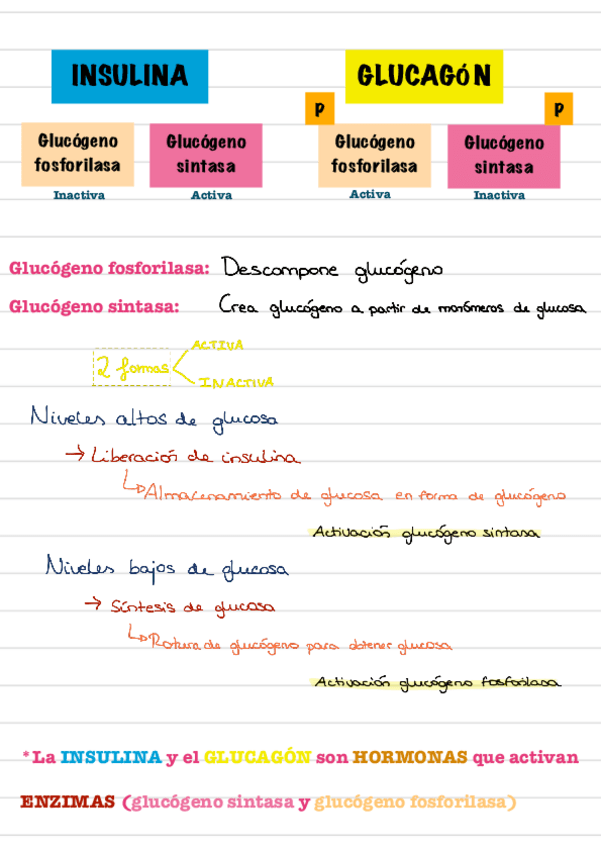 INSULINA
GLUCAGÓN
P
P
Glucógeno
fosforilasa
Glucógeno
sintasa
Glucógeno
fosforilasa
Glucógeno
sintasa
Inactiva
Activa
Activa
Inactiva
Glucógeno fosforilasa: Descompone glucógeno
Glucógeno sintasa: Crea glucógeno a partir de monómeros de glucosa
2 formas
ACTIVA
INACTIVA
Niveles altos de glucosa
→ Liberación de insulina
↳ Almacenamiento de glucosa en forma de glucógeno
Activación glucógeno sintasa
Niveles bajos de glucosa
→ Síntesis de glucosa
↳ Rotura de glucógeno para obtener glucosa
Activación glucógeno fosforilasa
*La INSULINA y el GLUCAGÓN son HORMONAS que activan
ENZIMAS (glucógeno sintasa y glucógeno fosforilasa)